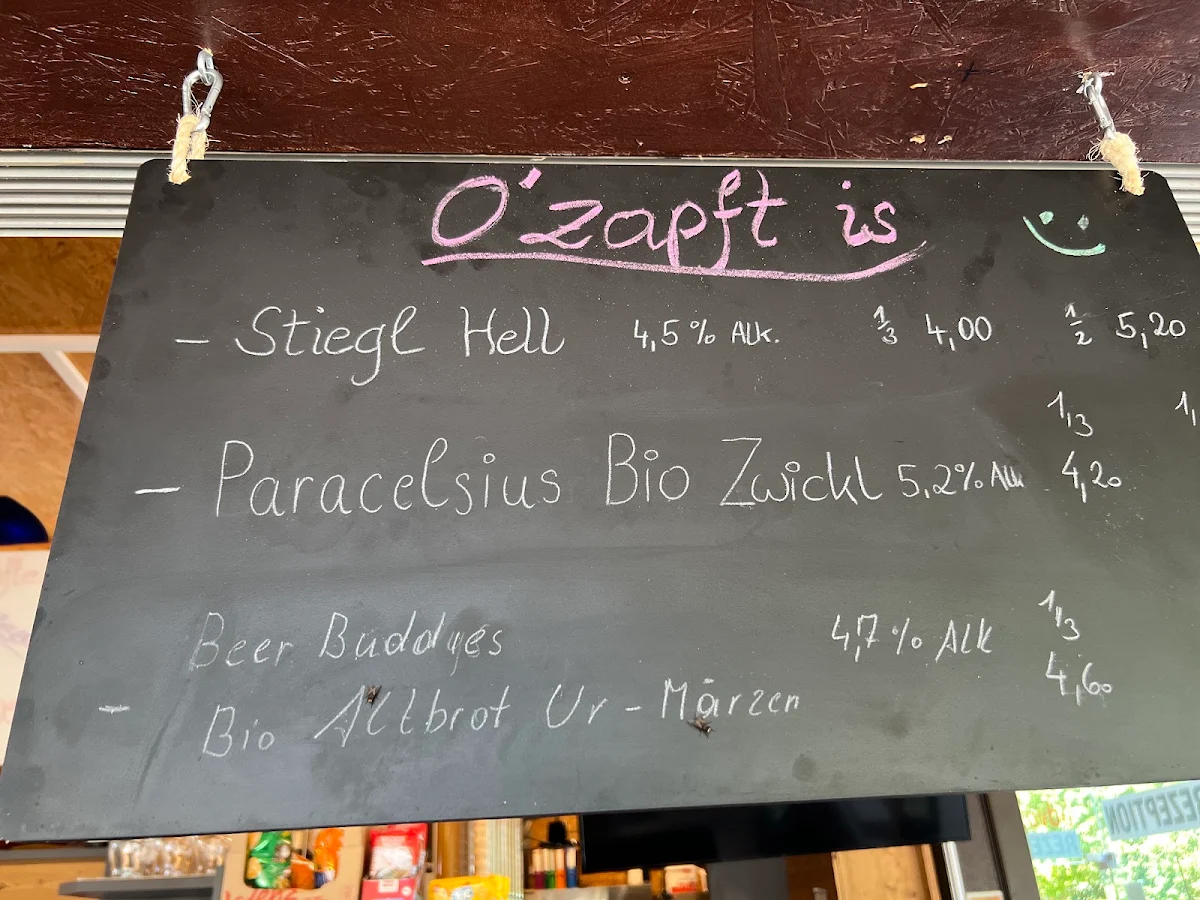 O'zapft is
- Stiegl Hell 4,5% Alk. 1/3 4,00 1/2 5,20
1/3
- Paracelsius Bio Zwickl 5,2% Alk 4,20
Beer Buddyes 4,7% Alk 1/3
4,60
- Bio Altbrot Ur-Märzen
REZEPTION